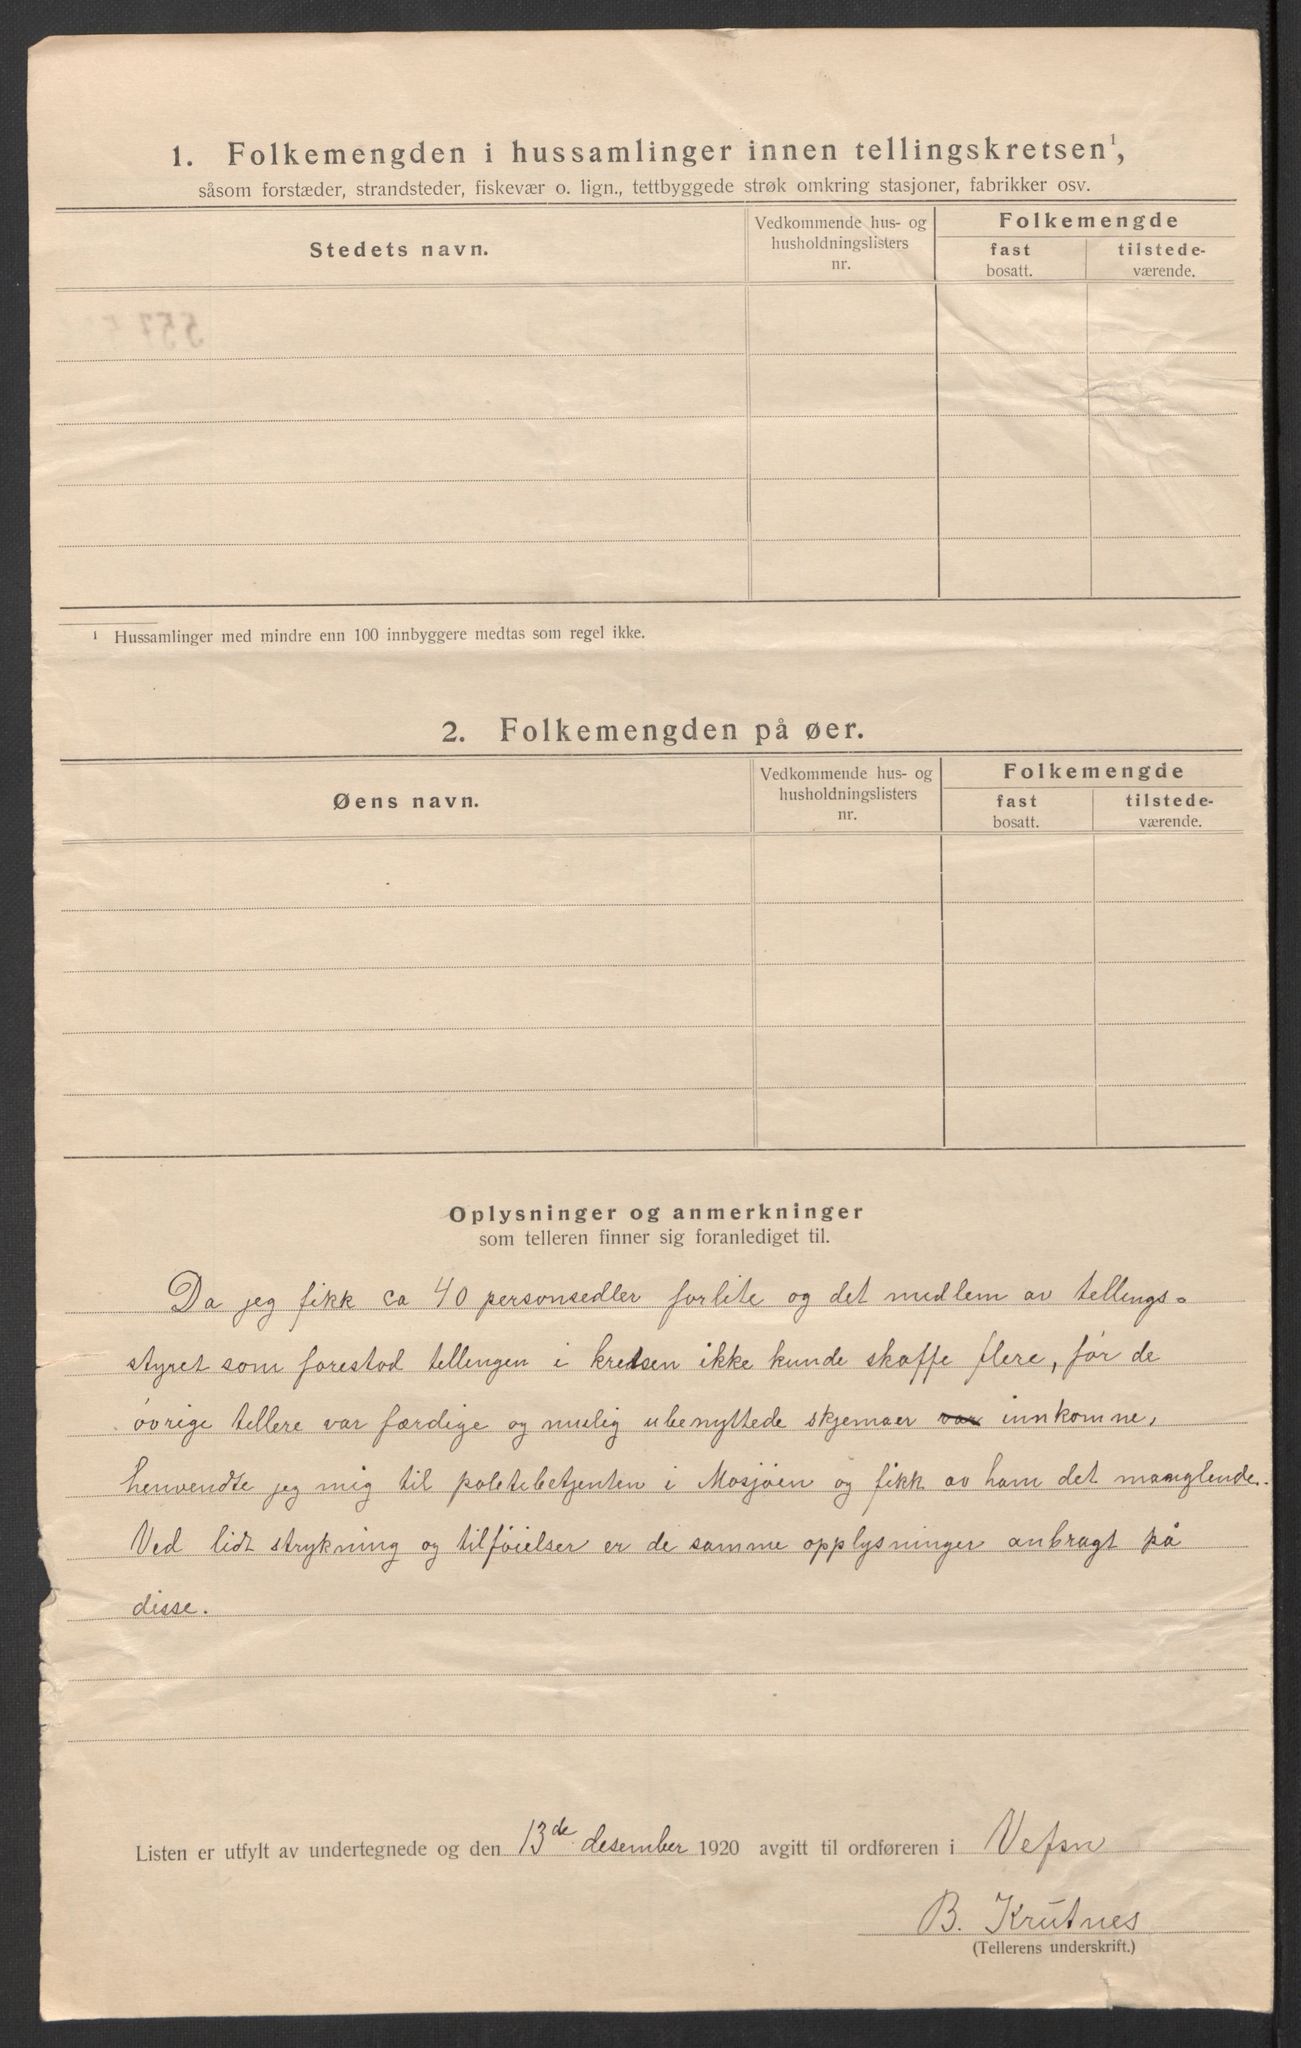 1. Folkemengden i hussamlinger innen tellingskretsen¹,
såsom forstæder, strandsteder, fiskevær o. lign., tettbyggede strøk omkring stasjoner, fabrikker osv.
Stedets navn.
Vedkommende hus- og
husholdningslisters
nr.
Folkemengde
fast
bosatt.
tilstede-
værende.
¹ Hussamlinger med mindre enn 100 innbyggere medtas som regel ikke.
2. Folkemengden på øer.
Øens navn.
Vedkommende hus- og
husholdningslisters
nr.
Folkemengde
fast
bosatt.
tilstede-
værende.
Oplysninger og anmerkninger
som telleren finner sig foranlediget til.
Da jeg fikk ca 40 personsedler forlite og det medlem av tellings-
styret som forestod tellingen i kretsen ikke kunde skaffe flere, før de
øvrige tellere var færdige og mulig ubenyttede skjemaer var innkomne,
henvendte jeg mig til politibetjenten i Mosjøen og fikk av ham det manglende.
Ved lidt strykning og tilføielser er de samme opplysninger anbragt på
disse.
Listen er utfylt av undertegnede og den 13de desember 1920 avgitt til ordføreren i Vefsn
B. Krutnes
(Tellerens underskrift.)